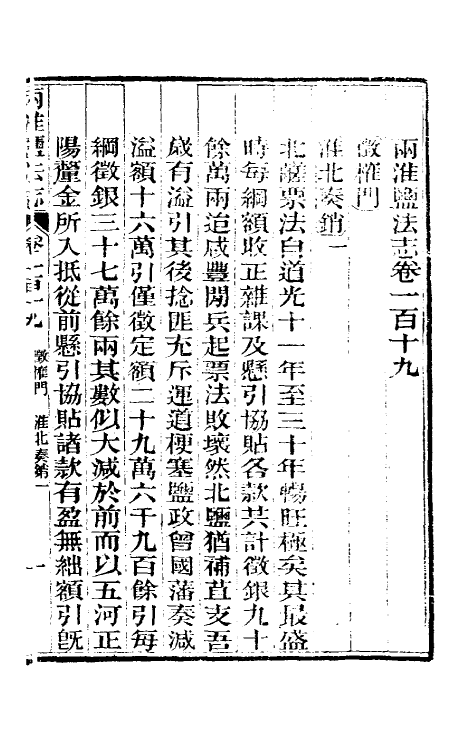 兩淮鹽法志卷一百十九
徵榷門
淮北奏銷一
北鹺票法自道光十一年至三十年暢旺極矣其最盛
時每綱額收正雜課及懸引協貼各款共計徵銀九十
餘萬兩迨咸豐閒兵起票法敗壞然北鹽猶補苴支吾
歲有溢引其後捻匪充斥運道梗塞鹽政曾國藩奏減
溢額十六萬引僅徵定額二十九萬六千九百餘引每
綱徵銀三十七萬餘兩其數似大減於前而以五河正
陽釐金所入抵從前懸引協貼諸款有盈無絀額引旣
兩淮鹽法志 卷一百十九 徵榷門 淮北奏銷一 一